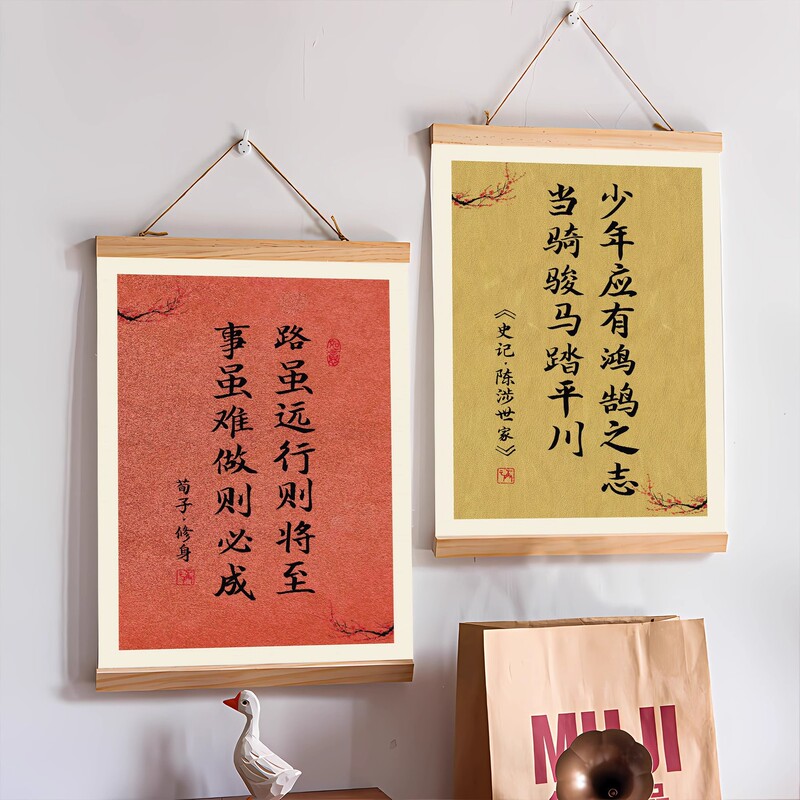 路虽远行则将至
事虽难做则必成
荀子·修身
少年应有鸿鹄之志
当骑骏马踏平川
《史记·陈涉世家》
MUJI